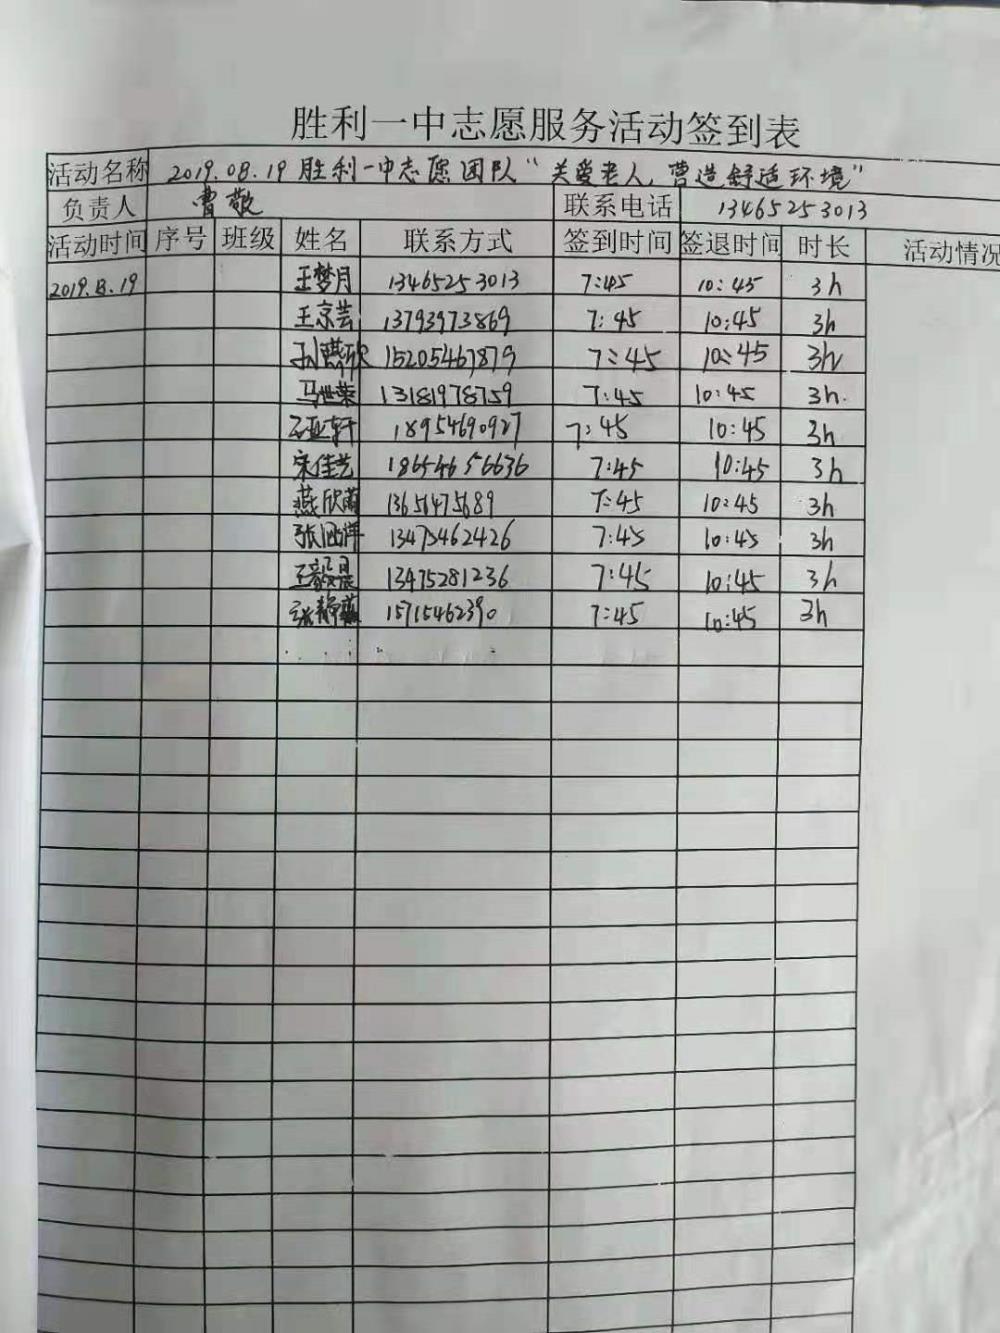 胜利一中志愿服务活动签到表
活动名称 2019.08.19 胜利一中志愿团队“关爱老人,营造舒适环境”
负责人 曹敬 联系电话 13465253013
活动时间 序号 班级 姓名 联系方式 签到时间 签退时间 时长 活动情况
2019.8.19 王梦月 13465253013 7:45 10:45 3h
王京芸 13793973869 7:45 10:45 3h
15205467879 7:45 10:45 3h
马世荣 13181978759 7:45 10:45 3h.
18954690927 7:45 10:45 3h
宋佳艺 18654656636 7:45 10:45 3h
燕欣 13651475689 7:45 10:45 3h
张 13475462426 7:45 10:45 3h
王毅晨 13475281236 7:45 10:45 3h
张静 15715462390 7:45 10:45 3h